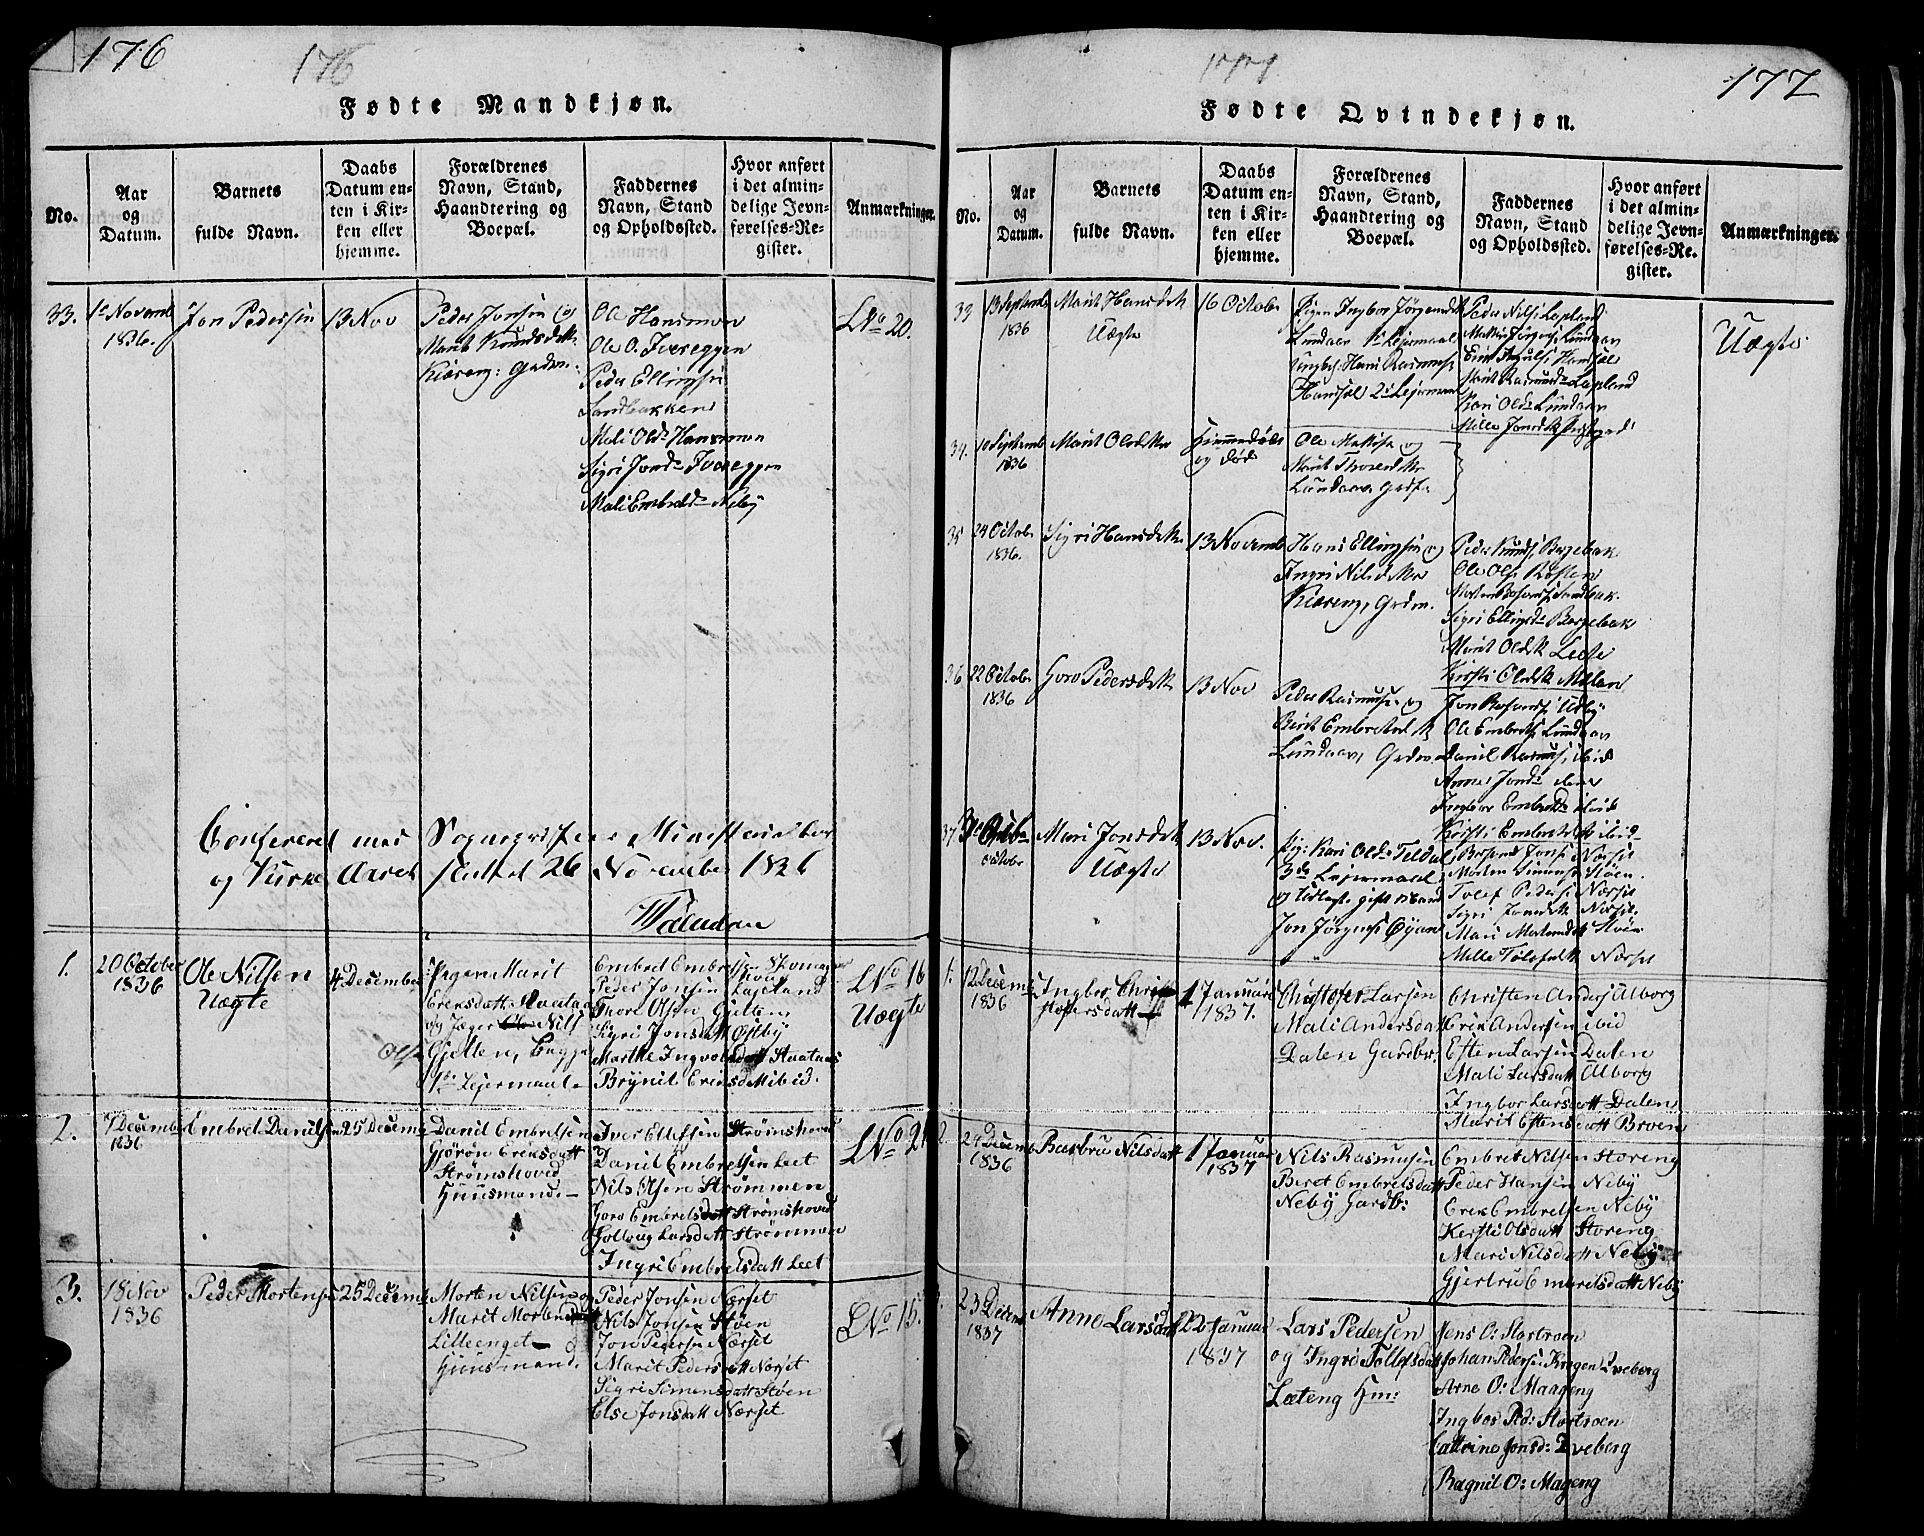 176
176
Fødte Mandkjøn.
No.
Aar
og
Datum.
Barnets
fulde Navn.
Daabs
Datum en-
ten i Kir-
ken eller
hjemme.
Forældrenes
Navn, Stand,
Haandtering og
Boepæl.
Faddernes
Navn, Stand
og Opholdssted.
Hvor anført
i det almin-
delige Jevn-
førelses-Re-
gister.
Anmærkninger.
33.
1te Novemb
1836.
Jon Pedersen
13 Nov
Peder Jonsen og
Marit Knudsdtr
Kiæreng: Grdm.
Ole Hansmoen
Ole O. Ivereggen
Peder Ellingsen
Sandbakken
Mali Olsd: Hansmoen
Sigri Jonsd: Ivereggen
Mali Embretsd: Neby
LNo 20.
Confereret med Sogneprestens Ministerialbog
og Kirke Aaret sluttet 26 November 1836
1.
20 October
1836
Ole Nilsen
Uægte
4 December
Pigen Marit
Eriksdatt
og Jæger Nils
Olsen
Gjelten,
1te Leiermaal
Peder Jonsen Lapeland
Thore Olsen Gjelten
Sigri Jonsdatt Østby
Marthe Ingvoldsdatt
Brynil Eriksdatt ibid.
LNo 16
Uægte
2.
7 Decemb
1836
Embret Danilsen
25 Decemb
Danil Embretsen
Gjørøn Eriksdatt
Strømshoved
Huusmand
Iver Ellefsen Strømshoved
Danil Embretsen Leet
Nils Olsen Strømmen
Goro Embretsdatt Strømshoved
Golaug Larsdatt Strømmen
Ingri Embretsdatt Leet
LNo 21
3.
18 Nov
1836
Peder Mortensen
25 Decemb
Morten Nilsen og
Maret Mortensd
Lilleenget
Huusmand.
Peder Jonsen Nørset
Nils Jonsen Støen
Jon Pedersen Nørset
Marit Pedersdatt Nørset
Sigri Simensdatt Støen
Else Jonsdatt Nørset
LNo 15.
177
177
Fødte Qvindekjøn.
No.
Aar
og
Datum.
Barnets
fulde Navn.
Daabs
Datum en-
ten i Kir-
ken eller
hjemme.
Forældrenes
Navn, Stand,
Haandtering og
Boepæl.
Faddernes
Navn, Stand
og Opholdssted.
Hvor anført
i det almin-
delige Jevn-
førelses-Re-
gister.
Anmærkninger.
33
13 Septemb
1836
Marit Hansdtr
Uægte
16 Octobr
Pigen Ingbor Jørgensdtr
Lundaaen 1te Leiermaal
Ungk: Hans Rasmuss
Hamsæl 2d Leiermaal
Peder Nilss Lapeland
Marit Rasmusd: Lapeland
Kari Olsd: Lundaaen
Uægte
34.
10 Septemb
1836
Marit Olsdtr
Hjemmedøbt
og død
Ole Mattisen og
Marit Thoresdtr
Lundaaen Grdfr
35
24 Octobr
1836.
Sigri Hansdtr
13 Novemb
Hans Ellingsen og
Ingri Nilsdtr
Kiæreng, Grdm.
Peder Knuds Borgebak
Ole Ols Kosten
Sigri Ellingsd: Borgebak
Marit Olsdtr Leete
Kirsti Olsdtr Moan
36
22 Octobr
1836
Goro Pedersdtr
13 Nov
Peder Rasmuss og
Berit Embretsd
Lundaaen, Grdm
Ole Embrets Lundaaen
Daniel Rasmuss ibid
Anne Jonsd:
Ingbor Embretsd ibid
Kirsti Embretsdtr ibid
37
Octobr
Mari Jonsdtr
Uægte
13 Nov.
Pig: Kari Olsd: Teldal
3de Leiermaal
og Udlagte gift Mand
Jon Jørgens Øyan
Morten Simens Støen
Tolef Peders Nørset
Sigri Jonsdtr Nørset
Mari Mortensdtr Støen
Mille Tolefsdtr Nørset
1.
12 Decemb
1836
Ingbor Chris
tofersdatt
1 Januari
1837.
Christofer Larsen
Mali Andersdatt
Dalen Gardbr
Christen Anders Alborg
Erik Andersen ibid
Esten Larsen Dalen
Mali Larsdatt Alborg
Ingbor Larsdatt Dalen
Marit Estensdatt Broen
2.
24 Decemb
1836
Barbru Nilsdatt
1 Januar
1837
Nils Rasmusen
Beret Embretsdatt
Neby Gardb:
Embret Nilsen Storeng
Peder Hansen Neby
Erik Embretsen Neby
Kersti Olsdatt Storeng
Mari Nilsdatt Neby
Gjertru Embretsdatt Neby
3.
23 Decem
1837
Anne Larsdatt
22 Januar
1837
Lars Pedersen
og Ingri Tollefsdatt
Læteng Hm:
Jens O: Stortroen
Johan Pedersen Kregen Tveberg
Arne O: Maageng
Ingbor Ped: Stortroen
Cathrine Jonsd: Tveberg
Ragnil O: Mageng